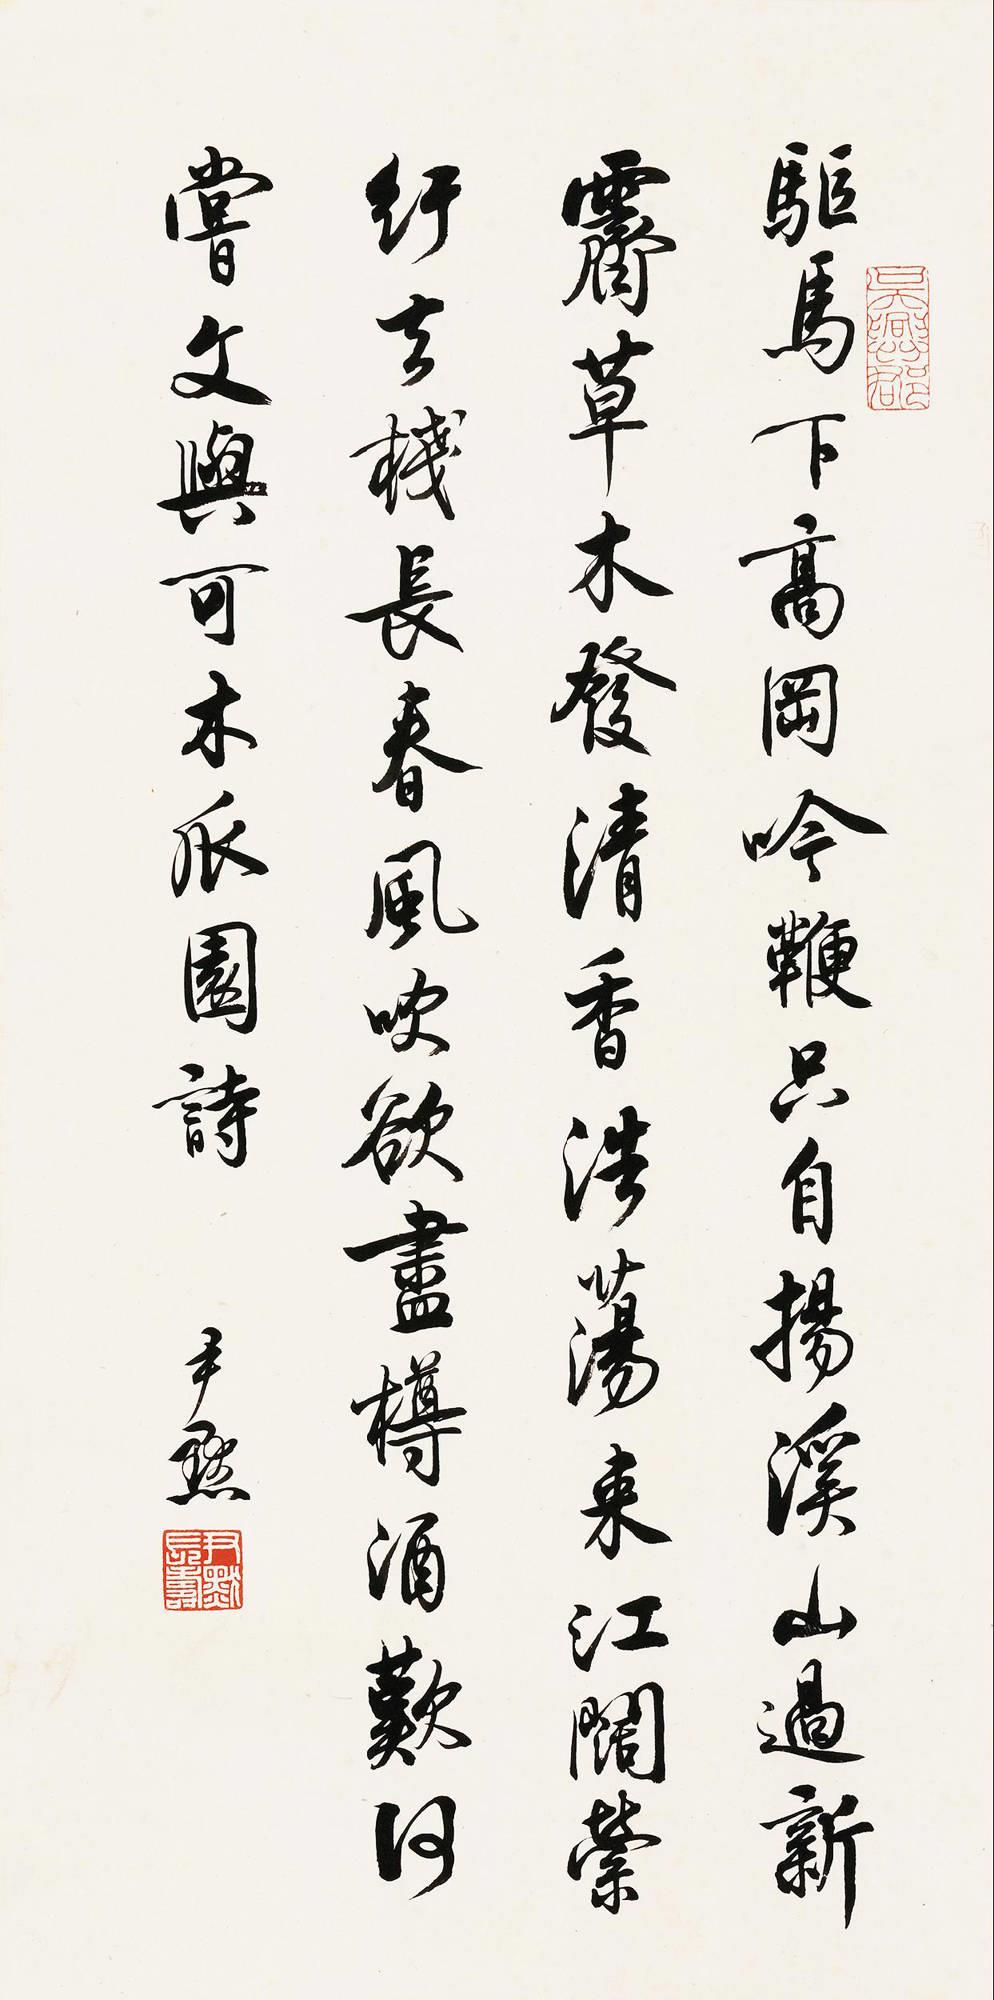 驅馬下高岡吟鞭只自揚溪山過新
霽草木發清香浩蕩來江闊縈
紆去棧長春風吹欲盡樽酒歎何
嘗文與可木瓜園詩
尹默
尹默長壽